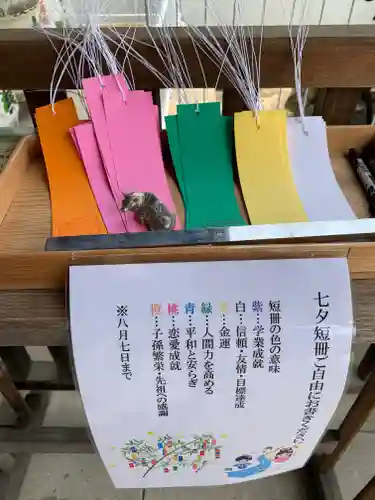 七夕短冊ご自由にお書きください
短冊の色の意味
紫…学業成就
白…信頼・友情・目標達成
黄…金運
緑…人間力を高める
青…平和と安らぎ
桃…恋愛成就
橙…子孫繁栄・先祖への感謝
※八月七日まで